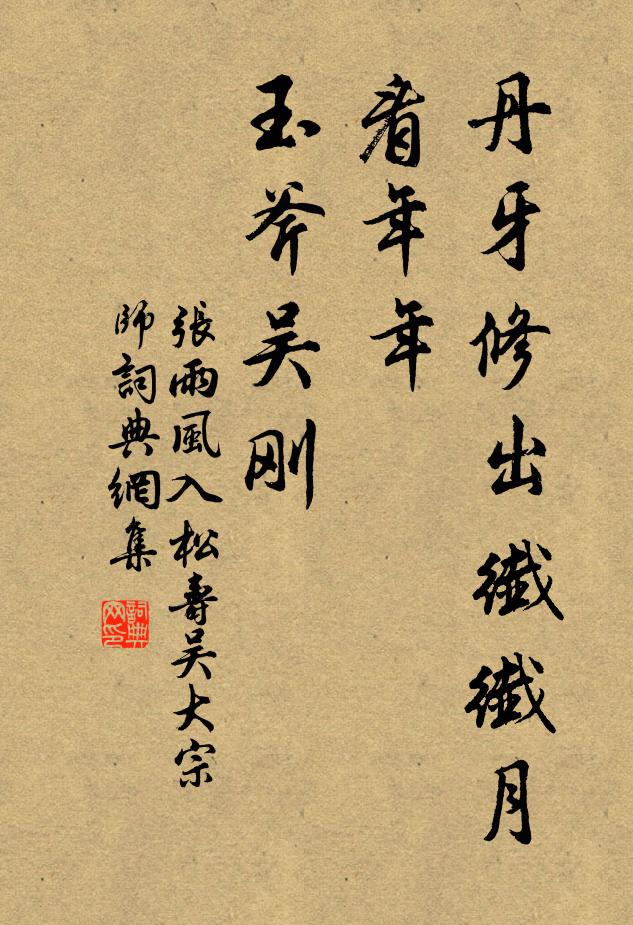 丹牙修出纖纖月
看年年
玉斧吴刚
張雨風入松壽吴大宗
師詞典網集
詞典
网印